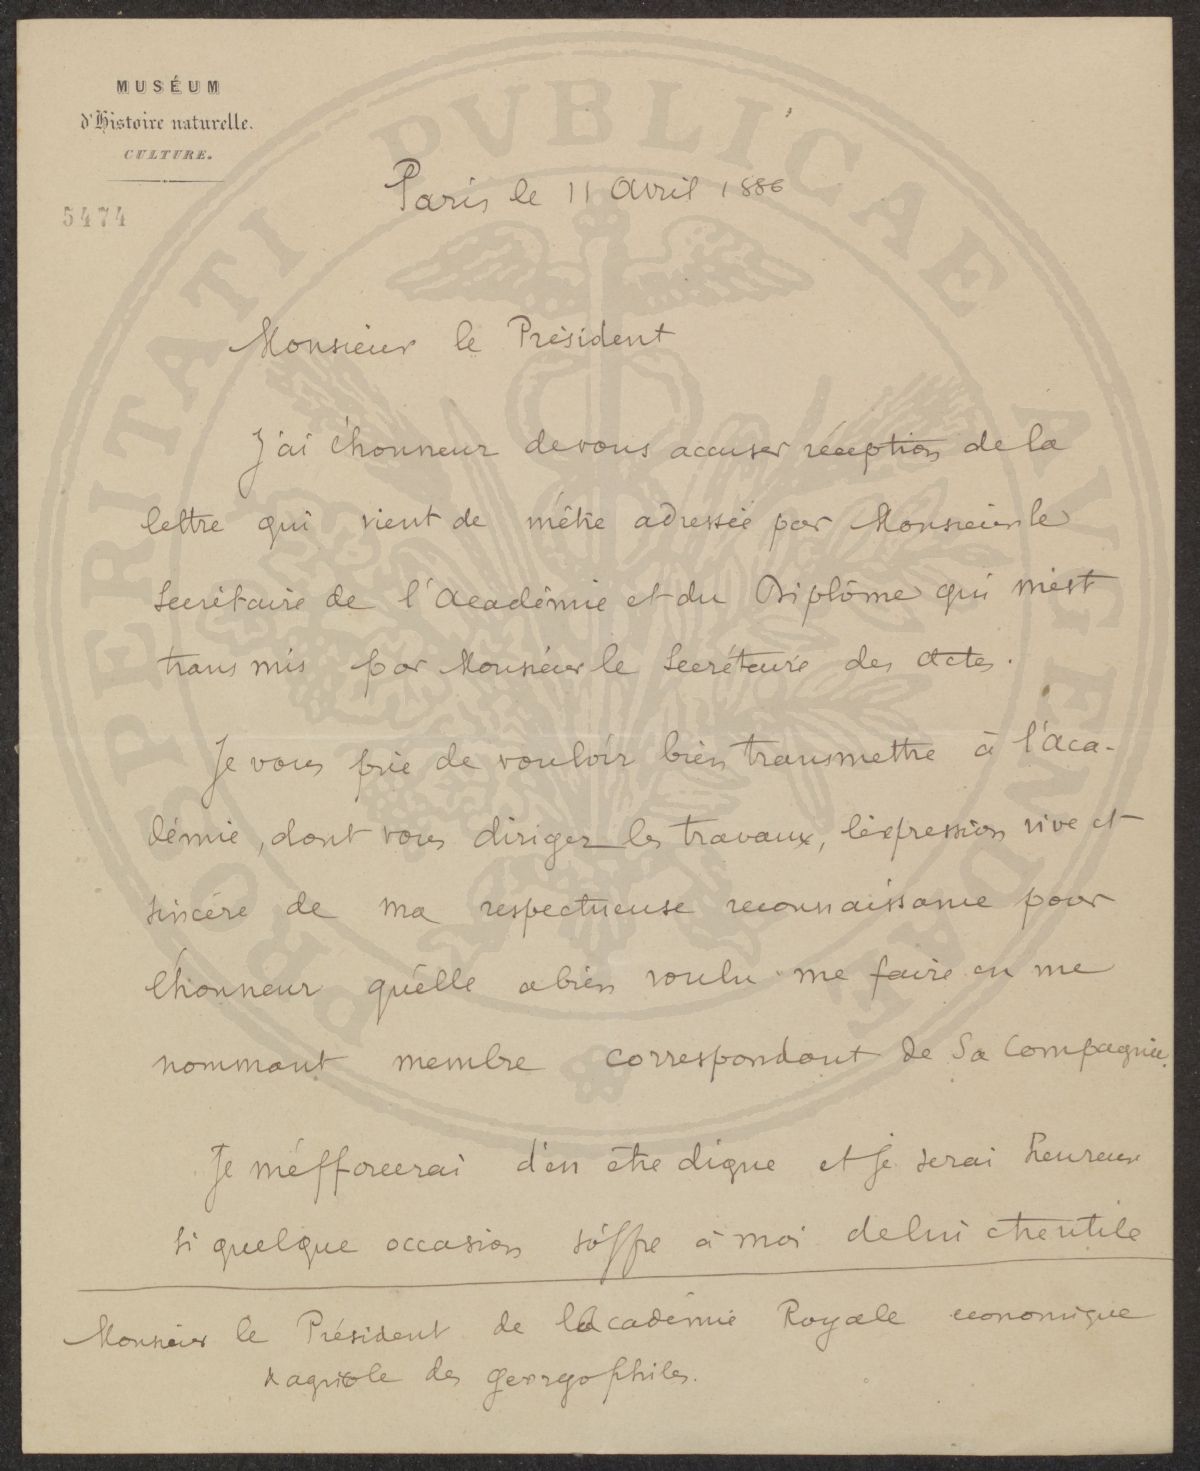 MUSÉUM
d'Histoire naturelle.
CULTURE.
5474
Paris le 11 Avril 1886
Monsieur le Président
J'ai l'honneur de vous accuser réception de la
lettre qui vient de m'être adressée par Monsieur le
Secrétaire de l'Académie et du Diplôme qui m'est
transmis par Monsieur le Secrétaire des actes.
Je vous prie de vouloir bien transmettre à l'Aca-
démie, dont vous dirigez les travaux, l'expression vive et
sincère de ma respectueuse reconnaissance pour
l'honneur qu'elle a bien voulu me faire en me
nommant membre correspondant de Sa Compagnie.
Je m'efforcerai d'en être digne et je serai heureux
si quelque occasion s'offre à moi de lui être utile
Monsieur le Président de l'Académie Royale economique
& agricole des georgophiles.
PROSPERITATI PVBLICAE AVGENDAE